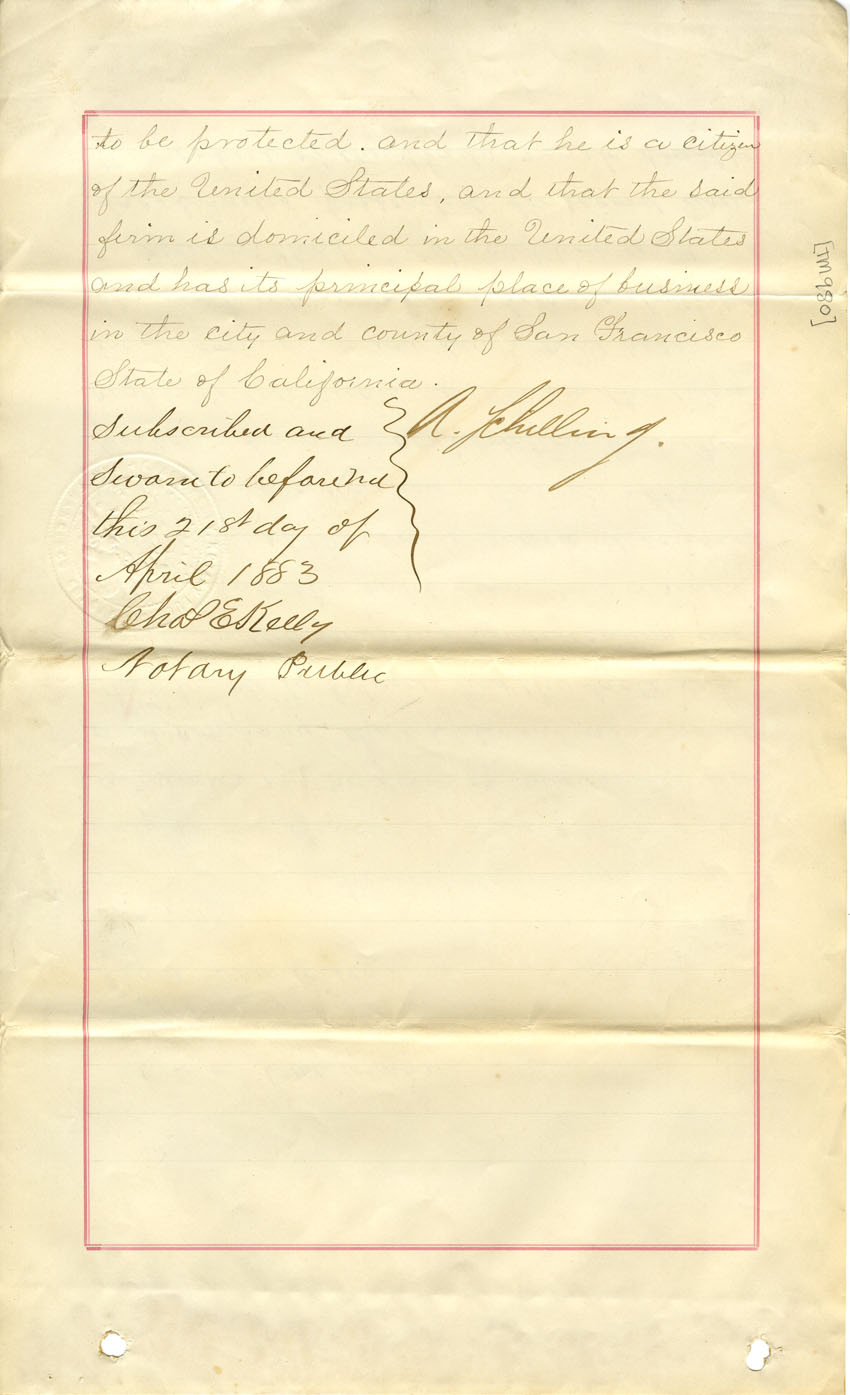 to be protected. and that he is a citizen
of the United States, and that the said
firm is domiciled in the United States
and has its principal place of business
in the city and county of San Francisco
State of California.
Subscribed and
Sworn to before me
this 21st day of
April 1883
A. Schilling.
Chas E Kelly
Notary Public
[TM980]